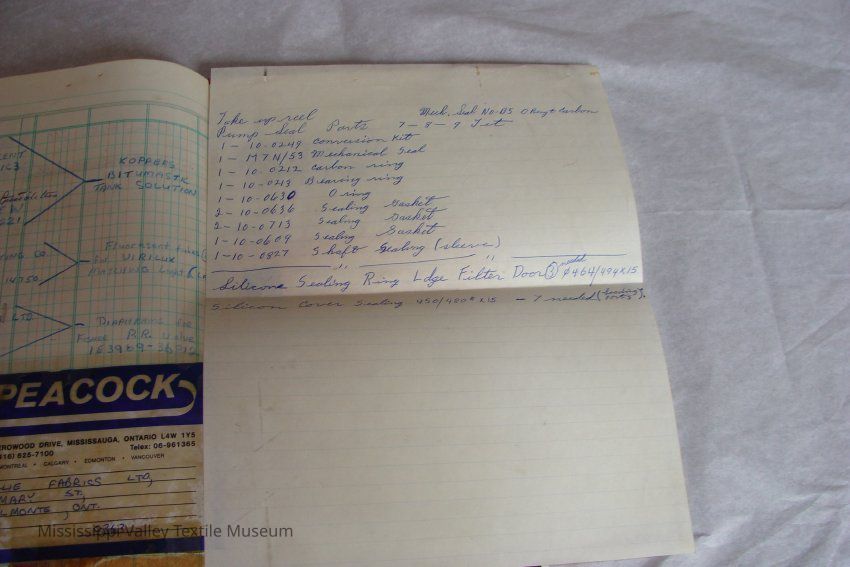 KOPPERS
BITUMASTIC
TANK SOLUTION
221
Fluorescent
for VIRILUX
14750
LTD
DIAPHRAGMS for
Fisher P.R. Valve
1E3989-
PEACOCK
EROWOOD DRIVE, MISSISSAUGA, ONTARIO L4W 1Y5
416) 625-7100 Telex: 06-961365
MONTREAL • CALGARY • EDMONTON • VANCOUVER
FABRICS LTD,
MARY ST,
LMONTE, ONT.
Take up reel Mech. Seal No-B5 O Ring & Carbon
Pump Seal Parts 7-8-9 Jet
1-10-0249 Conversion Kit
1-M7N/53 Mechanical Seal
1-10-0212 Carbon ring
1-10-0213 Bearing ring
1-10-0630 O ring
2-10-0636 Sealing Gasket
2-10-0713 Sealing Gasket
1-10-0609 Sealing Gasket
1-10-0827 Shaft Sealing (sleeve)
" "
Silicone Sealing Ring Ldge Filter Door ③ needed ø464/494x15
Silicon Cover Sealing 450/480ø x15 - 7 needed
Mississippi Valley Textile Museum